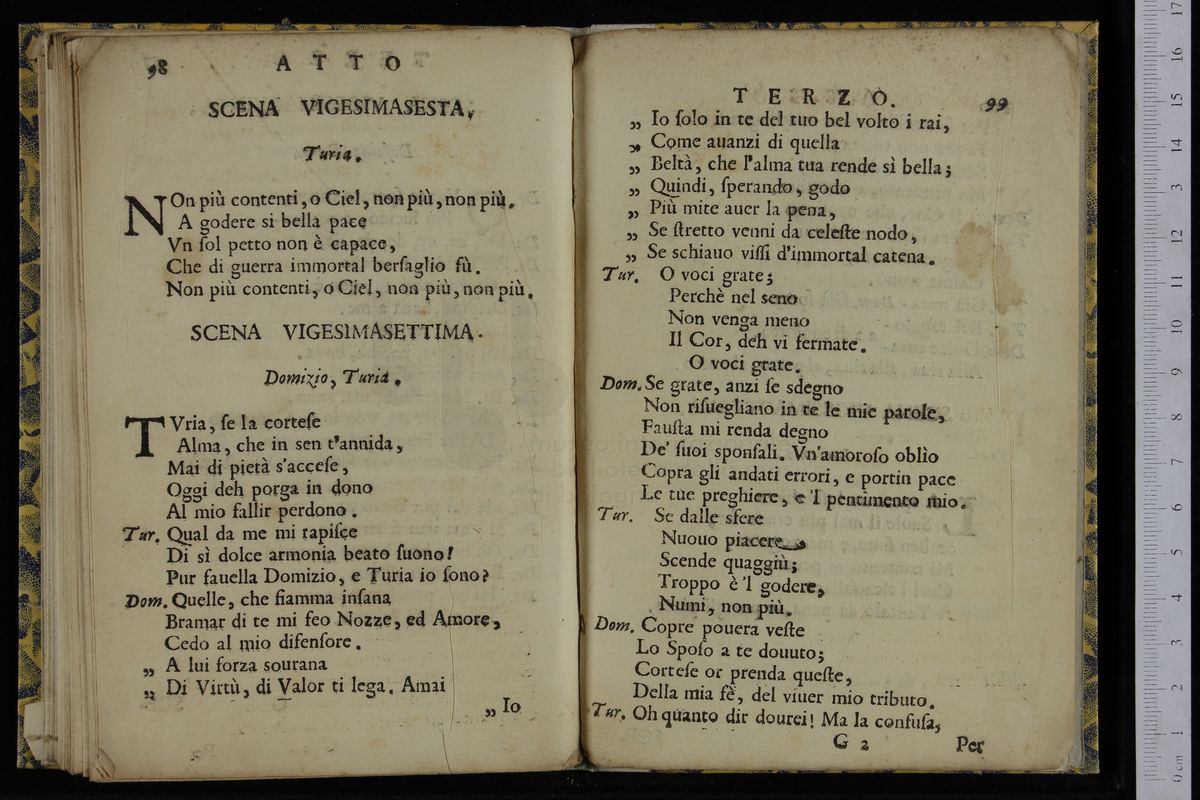 98 ATTO
SCENA VIGESIMASESTA,
Turia.
NOn più contenti, o Ciel, non più, non più.
A godere si bella pace
Vn ſol petto non è capace,
Che di guerra immortal berſaglio fù.
Non più contenti, o Ciel, non più, non più.
SCENA VIGESIMASETTIMA.
Domizio, Turia.
TVria, ſe la corteſe
Alma, che in sen t'annida,
Mai di pietà s'acceſe,
Oggi deh porga in dono
Al mio fallir perdono.
Tur. Qual da me mi rapiſce
Di sì dolce armonia beato ſuono!
Pur fauella Domizio, e Turia io ſono?
Dom. Quelle, che fiamma inſana
Bramar di te mi feo Nozze, ed Amore,
Cedo al mio difenſore.
„ A lui forza sourana
„ Di Virtù, di Valor ti lega. Amai
„ Io
TERZO. 99
„ Io ſolo in te del tuo bel volto i rai,
„ Come auanzi di quella
„ Beltà, che l'alma tua rende sì bella;
„ Quindi, ſperando, godo
„ Più mite auer la pena,
„ Se ſtretto venni da celeſte nodo,
„ Se schiauo viſſi d'immortal catena.
Tur. O voci grate;
Perchè nel seno
Non venga meno
Il Cor, deh vi fermate.
O voci grate.
Dom. Se grate, anzi ſe sdegno
Non riſuegliano in te le mie parole,
Fauſta mi renda degno
De' ſuoi sponſali. Vn'amoroſo oblìo
Copra gli andati errori, e portin pace
Le tue preghiere, e 'l pentimento mio.
Tur. Se dalle sfere
Nuouo piacere
Scende quaggiù;
Troppo è 'l godere,
Numi, non più.
Dom. Copre pouera veſte
Lo Spoſo a te douuto;
Corteſe or prenda queſte,
Della mia fè, del viuer mio tributo.
Tur. Oh quanto dir dourei! Ma la confuſa,
G 2 Per
0 cm 1 2 3 4 5 6 7 8 9 10 11 12 13 14 15 16 17